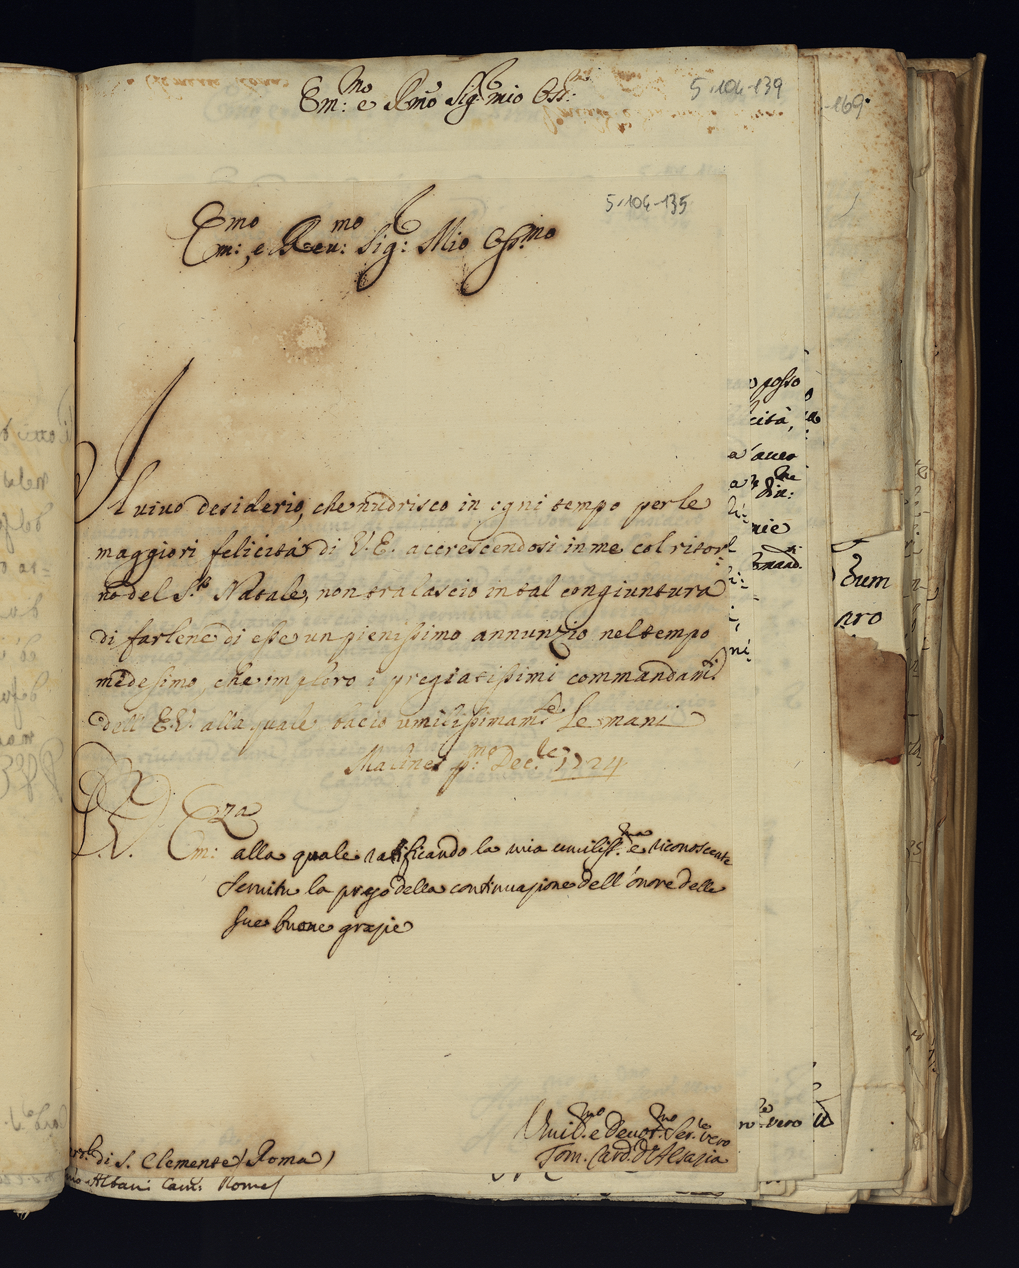 Em:mo e Rmo Sig: mio Oss:mo
5-104-139
-169
5-104-135
Em:mo, e Reu:mo Sig: Mio Oss:mo
Il viuo desiderio, che nudrisco in ogni tempo per le
maggiori felicità di V.E. accrescendosi in me col ritor=
no del S.to Natale, non tralascio in tal congiuntura
di farlene di esse un pienissimo annunzio nel tempo
medesimo, che imploro i pregiatissimi commandam.ti
dell'E.V. alla quale bacio umilissimam.te le mani
Malines p.mo Dec.le 1724
V. Em:za alla quale ratificando la mia umiliss.ma e riconoscente
Seruitu la prego della continuazione dell'onore delle
sue buone grazie
Umil.mo e Deuot.mo Ser.le vero
Tom. Card. d'Alsazia
di S. Clemente (Roma)
Albani Cam: Rome)
posso
cità,
auer
mie
Eum
pro
vero